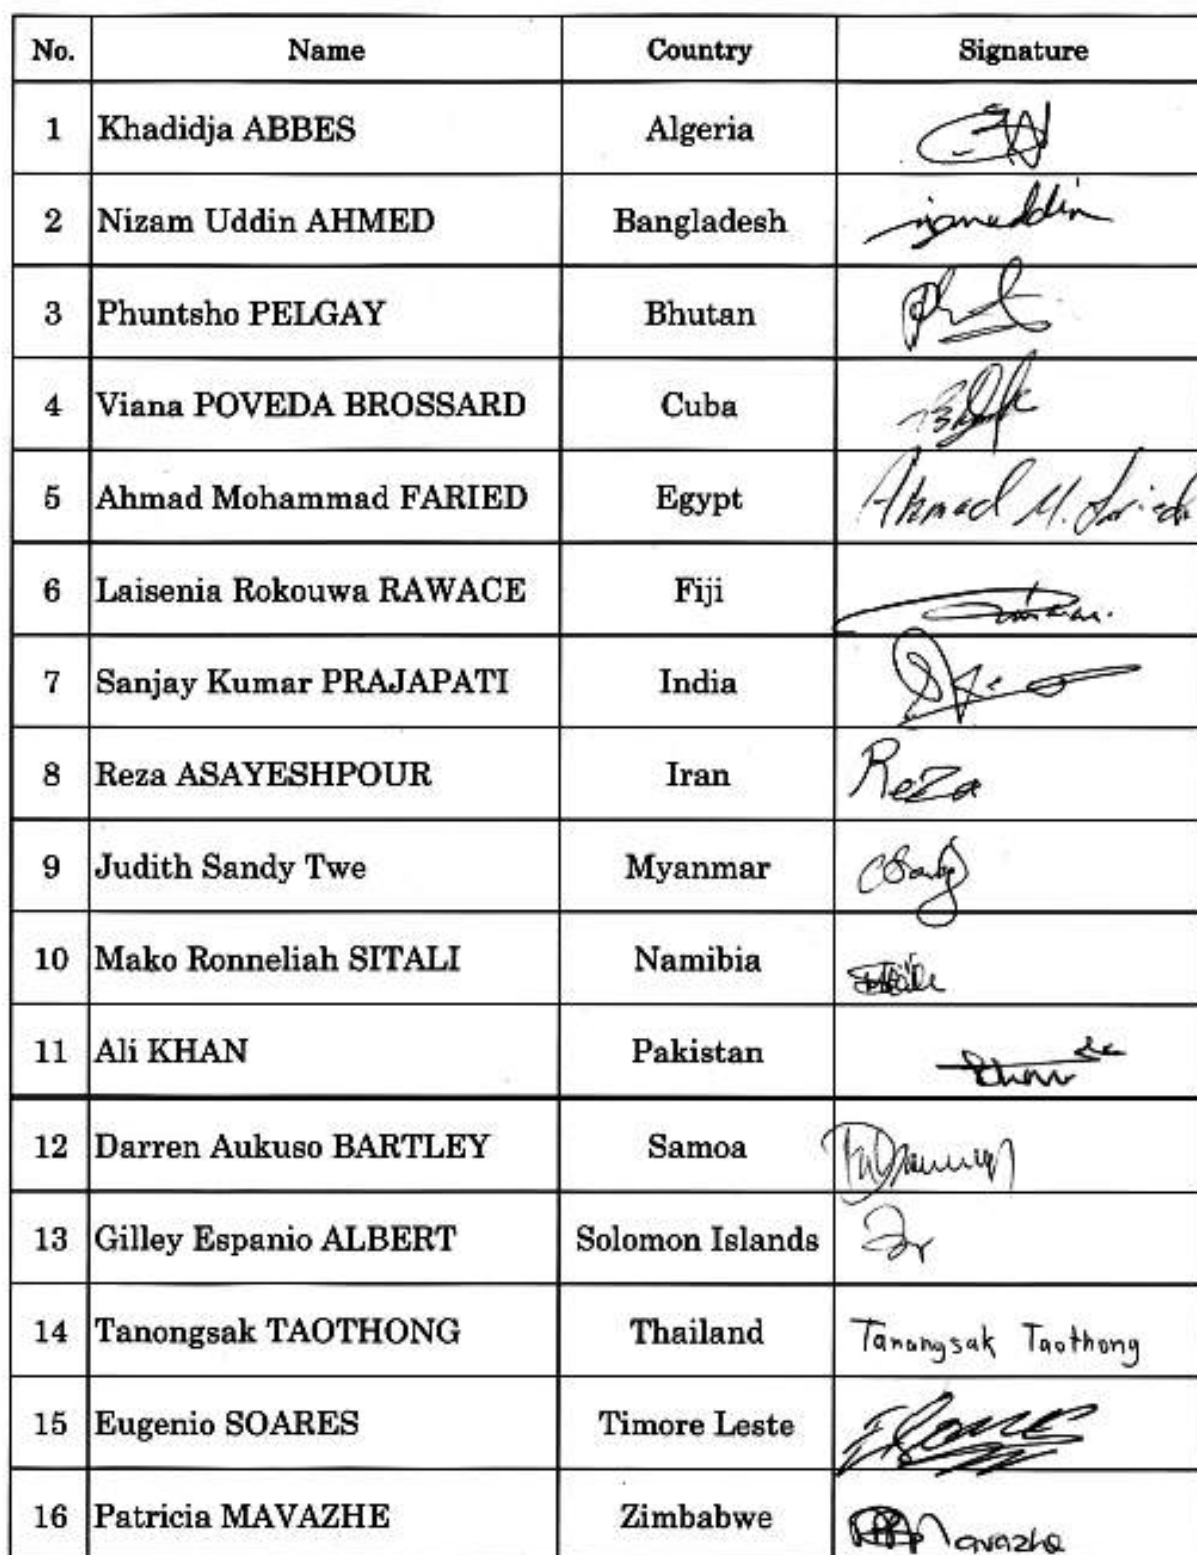 No. Name Country Signature
1 Khadidja ABBES Algeria
2 Nizam Uddin AHMED Bangladesh
3 Phuntsho PELGAY Bhutan
4 Viana POVEDA BROSSARD Cuba
5 Ahmad Mohammad FARIED Egypt Ahmad M. Faried
6 Laisenia Rokouwa RAWACE Fiji
7 Sanjay Kumar PRAJAPATI India
8 Reza ASAYESHPOUR Iran Reza
9 Judith Sandy Twe Myanmar
10 Mako Ronneliah SITALI Namibia
11 Ali KHAN Pakistan
12 Darren Aukuso BARTLEY Samoa
13 Gilley Espanio ALBERT Solomon Islands
14 Tanongsak TAOTHONG Thailand Tanongsak Taothong
15 Eugenio SOARES Timore Leste
16 Patricia MAVAZHE Zimbabwe Mavazhe